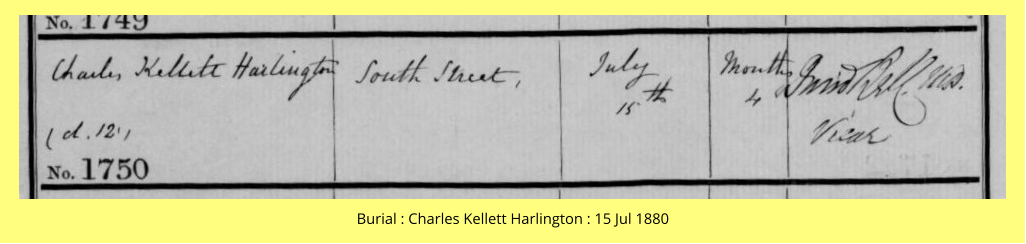 No. 1749
Charles Kellett Harlington South Street, July 15th Months 4 David Bell. MD. Vicar
(d. 12.)
No. 1750
Burial : Charles Kellett Harlington : 15 Jul 1880